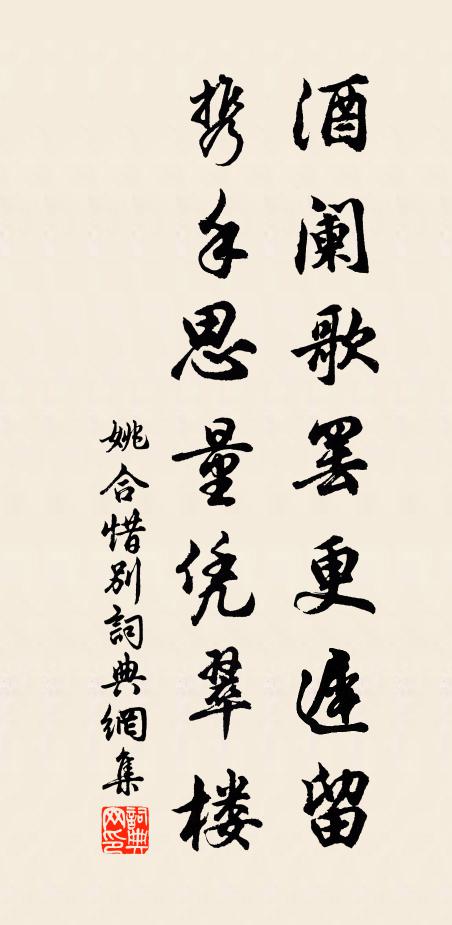 酒阑歌罢更迟留
携手思量凭翠楼
姚合惜别詞典網集
詞典
网印